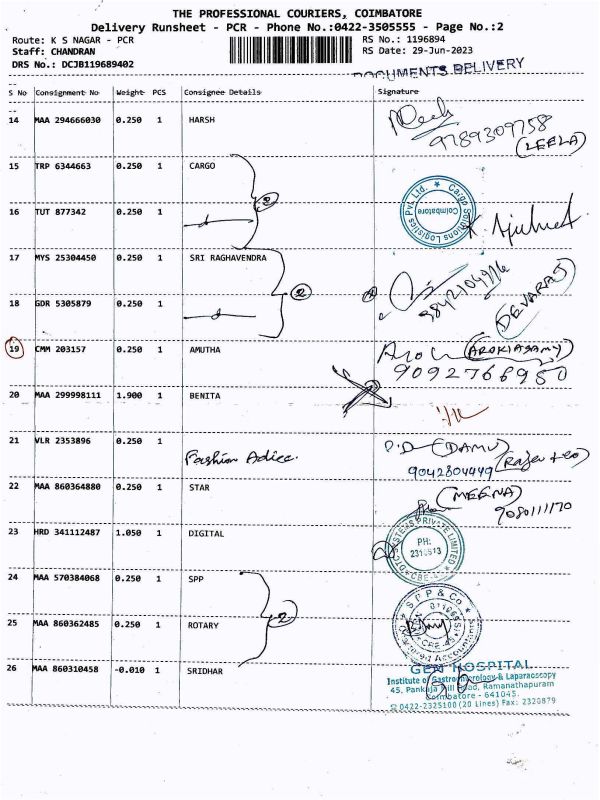 THE PROFESSIONAL COURIERS, COIMBATORE
Delivery Runsheet - PCR - Phone No.:0422-3505555 - Page No.:2
Route: K S NAGAR - PCR RS No.: 1196894
Staff: CHANDRAN RS Date: 29-Jun-2023
DRS No.: DCJB119689402
DOCUMENTS DELIVERY
S No Consignment No Weight PCS Consignee Details Signature
14 MAA 294666030 0.250 1 HARSH
9789309758
(LEELA)
15 TRP 6344663 0.250 1 CARGO
2
Cargo Solutions Logistics Pvt. Ltd.
Coimbatore
16 TUT 877342 0.250 1
17 MYS 25304450 0.250 1 SRI RAGHAVENDRA
2
DEVARAJ
18 GDR 5305879 0.250 1
19 CMM 203157 0.250 1 AMUTHA
(AROKIASAMY)
9092766950
20 MAA 299998111 1.900 1 BENITA
21 VLR 2353896 0.250 1 Fashion
(DAMU)
9042304449
22 MAA 860364880 0.250 1 STAR
(MEENA)
9080111170
23 HRD 341112487 1.050 1 DIGITAL
SYSTEMS PRIVATE LIMITED
PH:
24 MAA 570384068 0.250 1 SPP
2
S P P & Co.
25 MAA 860362485 0.250 1 ROTARY
26 MAA 860310458 -0.010 1 SRIDHAR
GEM HOSPITAL
Institute of Gastroenterology & Laparoscopy
45, Pankaja Mill Road, Ramanathapuram
Coimbatore - 641045.
0422-2325100 (20 Lines) Fax: 2320879